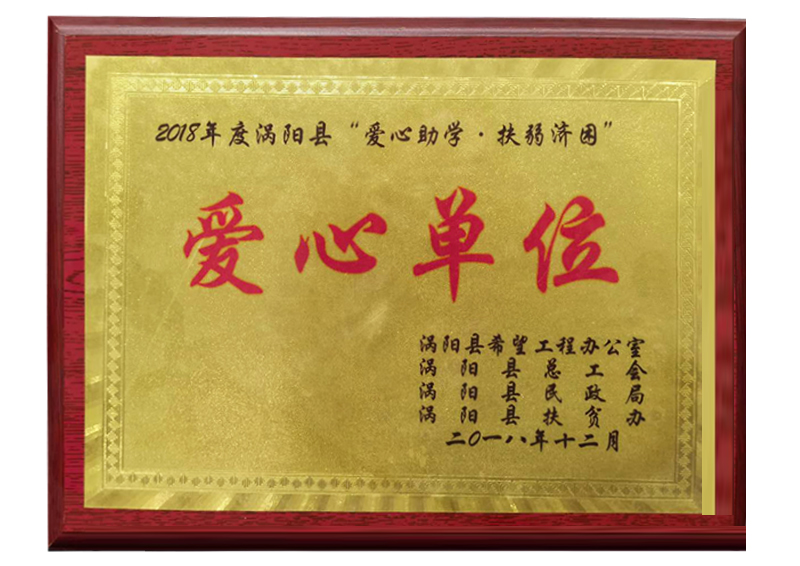 2018年度涡阳县“爱心助学·扶弱济困”
爱心单位
涡阳县希望工程办公室
涡阳县总工会
涡阳县民政局
涡阳县扶贫办
二〇一八年十二月